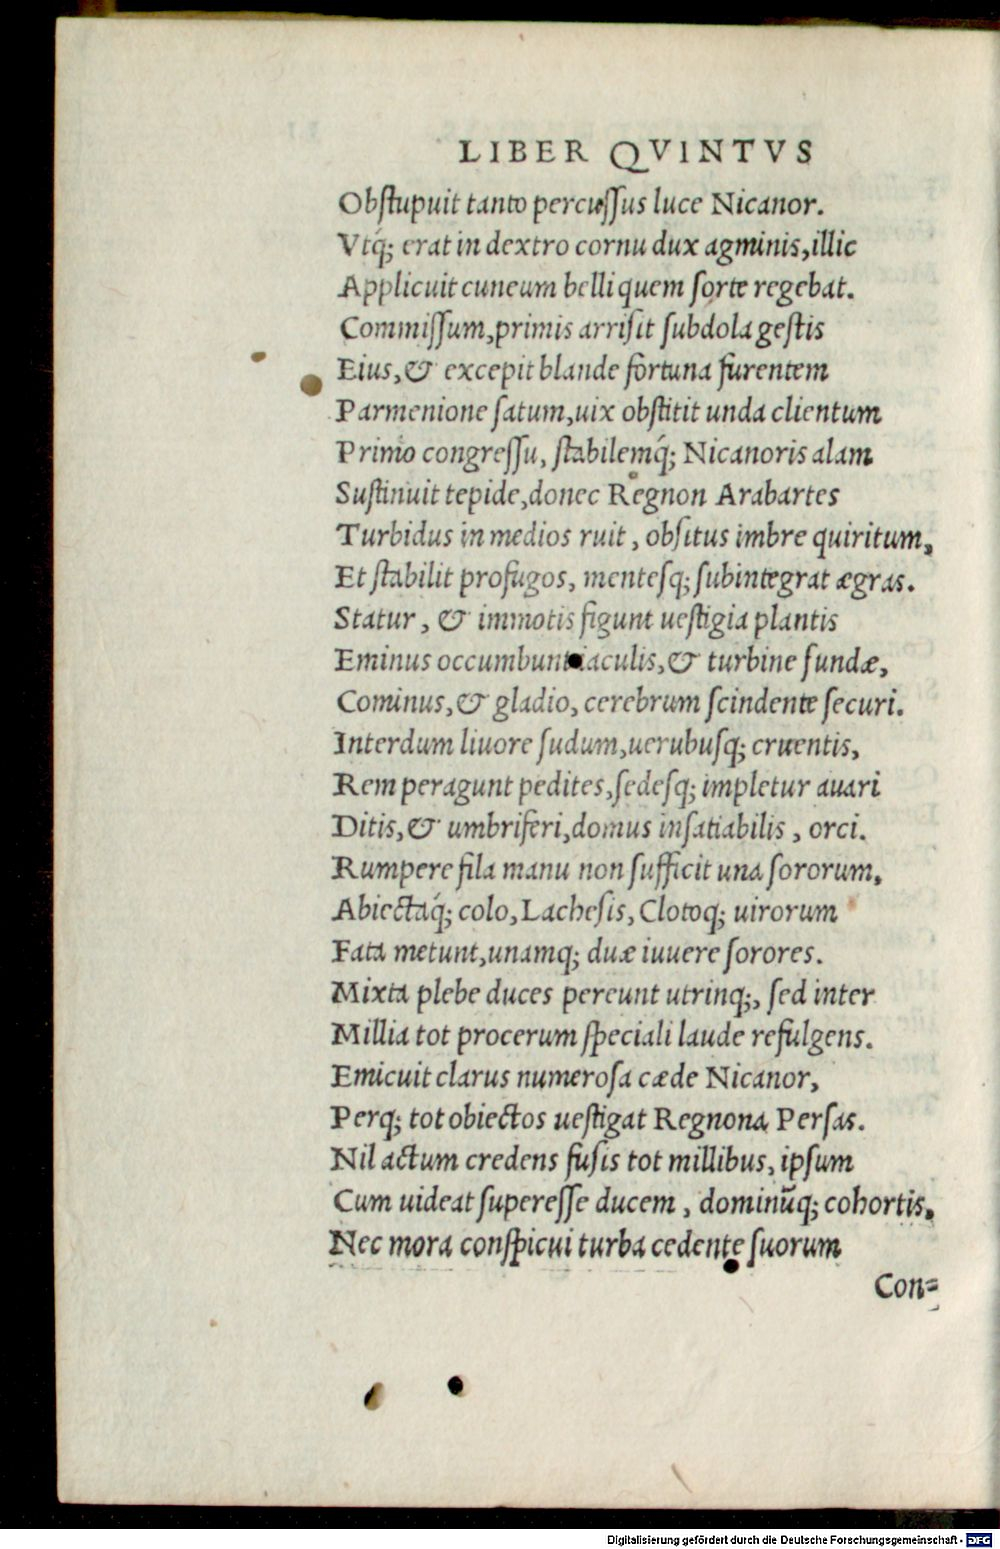 LIBER QVINTVS
Obſtupuit tanto percuſſus luce Nicanor.
Vtq́; erat in dextro cornu dux agminis, illic
Applicuit cuneum belli quem ſorte regebat.
Commiſſum, primis arriſit ſubdola geſtis
Eius, & excepit blande fortuna furentem
Parmenione ſatum, uix obſtitit unda clientum
Primo congreſſu, ſtabilemq́; Nicanoris alam
Suſtinuit tepide, donec Regnon Arabartes
Turbidus in medios ruit, obſitus imbre quiritum,
Et ſtabilit profugos, menteſq; ſubintegrat ægras.
Statur, & immotis figunt ueſtigia plantis
Eminus occumbunt iaculis, & turbine fundæ,
Cominus, & gladio, cerebrum ſcindente ſecuri.
Interdum liuore ſudum, uerubuſq; cruentis,
Rem peragunt pedites, ſedeſq; impletur auari
Ditis, & umbriferi, domus inſatiabilis, orci.
Rumpere fila manu non ſufficit una ſororum,
Abiectaq́; colo, Lacheſis, Clotoq; uirorum
Fata metunt, unamq; duæ iuuere ſorores.
Mixta plebe duces pereunt utrinq;, ſed inter
Millia tot procerum ſpeciali laude refulgens.
Emicuit clarus numeroſa cæde Nicanor,
Perq; tot obiectos ueſtigat Regnona Perſas.
Nil actum credens fuſis tot millibus, ipſum
Cum uideat ſupereſſe ducem, dominūq; cohortis,
Nec mora conſpicui turba cedente ſuorum
Con-
Digitalisierung gefördert durch die Deutsche Forschungsgemeinschaft - DFG